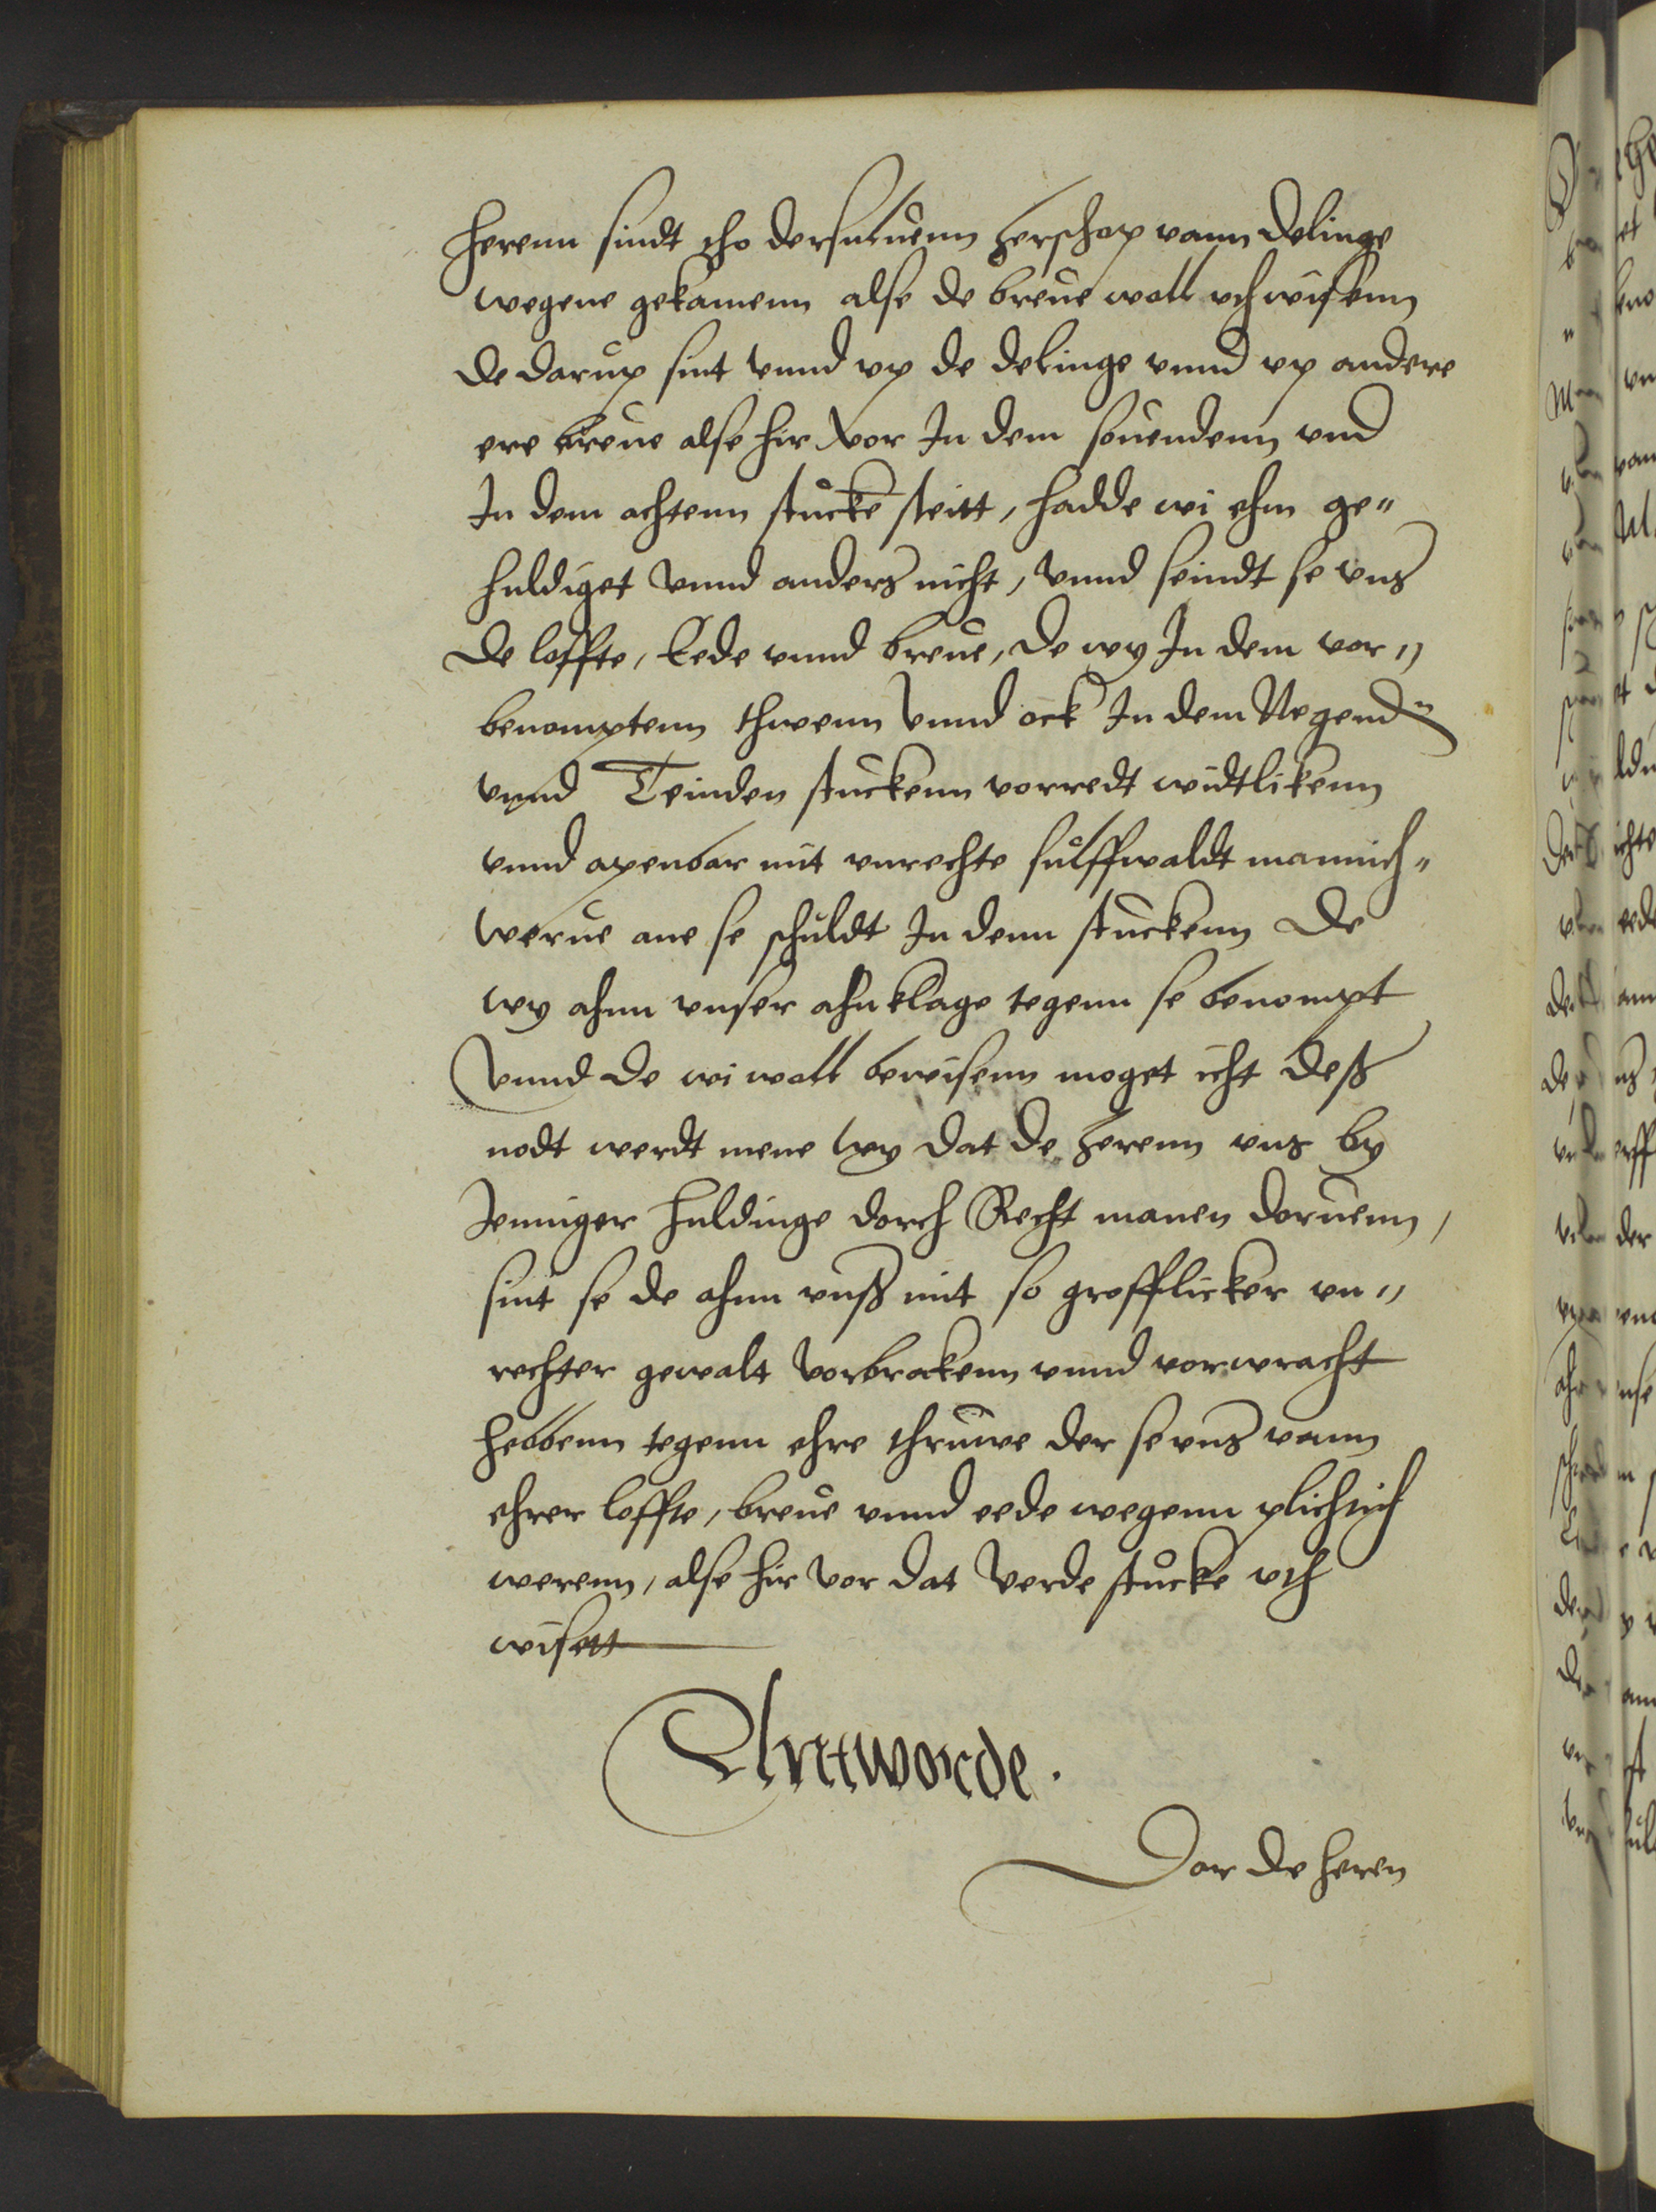 Herenn sindt tho dersuluenn herschop vann delinge
wegene gekamenn alse de breue woll uth wisenn
de darup sint vnnd vp de delinge vnnd vp andere
ere breue alse hir vor In dem souendenn vnd
In dem achtenn stucke steitt, hadde wi ehm ge„
huldiget vnnd anders nicht, vnnd seindt se vns
de loffte, Eede vnnd breue, de wy In dem vor„
benomptenn thwenn vnnd ock In dem Negend„
vnnd Teinden stuckenn vorredt widtlikenn
vnnd apenbar mit vnrechte sulffwaldt mannich„
werue ane se schuldt In denn stuckenn de
wy ahnn vnser ahnklage tegenn se benompt
vnnd de wi woll bewisenn moget icht deß
nodt werdt mene wy dat de herenn vns by
Jenniger huldinge dorch Recht manen doruenn,
sint se de ahnn vnß mit so grofflicker vn„
rechter gewalt vorbrakenn vnnd vorwracht
hebbenn tegenn ehre thruwe der se vns vann
ehrer loffte, breue vnnd eede wegenn plichtich
werenn, alse hir vor dat verde stucke vth
wisett
Antworde.
Dar de heren